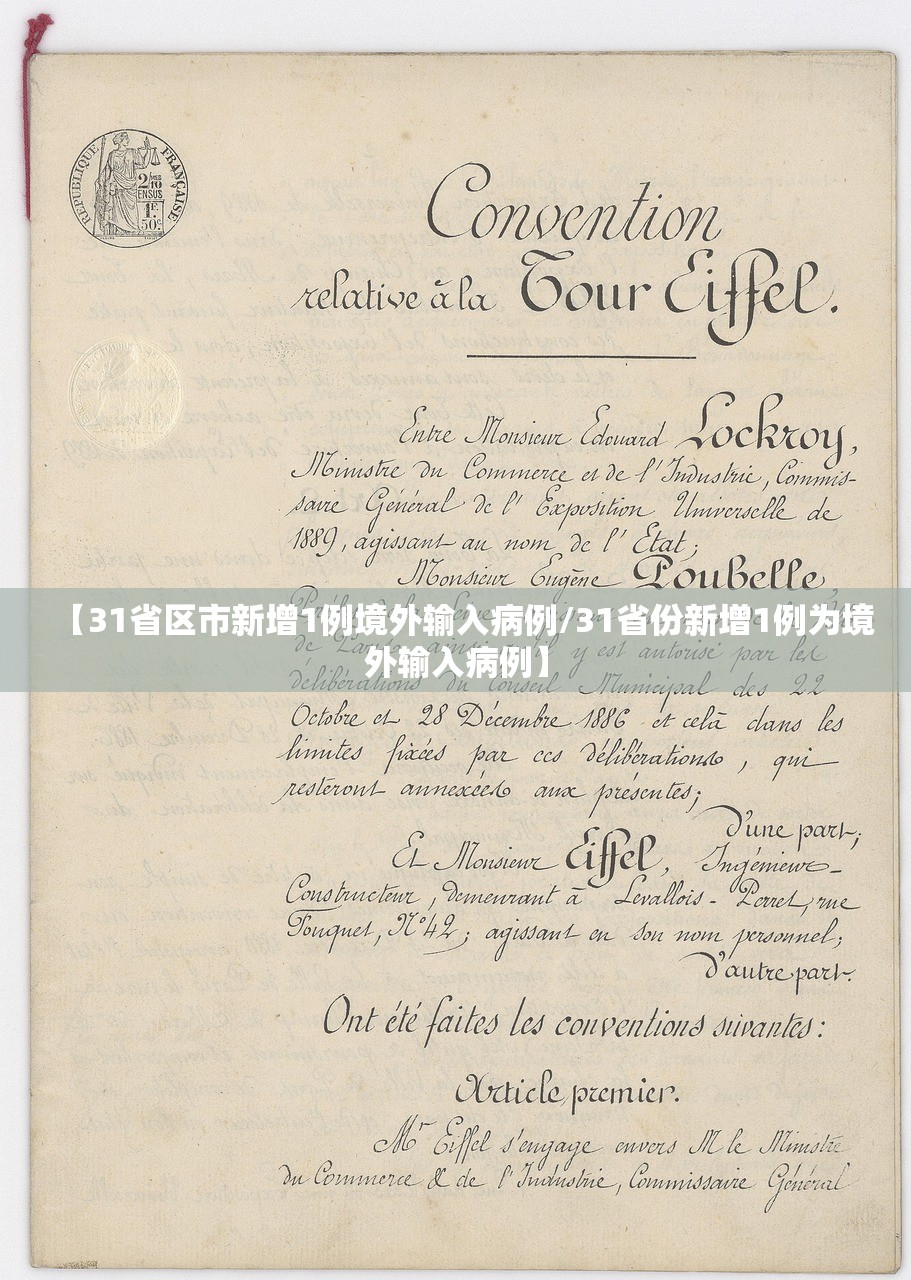 RÉPUBLIQUE FRANÇAISE
2/10
EN SUS
1F.
50c
Convention
relative à la Tour Eiffel.
Entre Monsieur Edouard Lockroy,
Ministre du Commerce et de l'Industrie, Commis-
saire Général de l'Exposition Universelle de
1889, agissant au nom de l'Etat;
Monsieur Eugène Poubelle,
【31省区市新增1例境外输入病例/31省份新增1例为境
外输入病例】
y est autorisé par les
délibérations du Conseil Municipal des 22
Octobre et 28 Décembre 1886 et celà dans les
limites fixées par ces délibérations, qui
resteront annexées aux présentes;
d'une part;
Et Monsieur Eiffel, Ingénieur-
Constructeur, demeurant à Levallois-Perret, rue
Fouquet, N°42; agissant en son nom personnel;
d'autre part.
Ont été faites les conventions suivantes:
Article premier.
Mr Eiffel s'engage envers M le Ministre
du Commerce & de l'Industrie, Commissaire Général